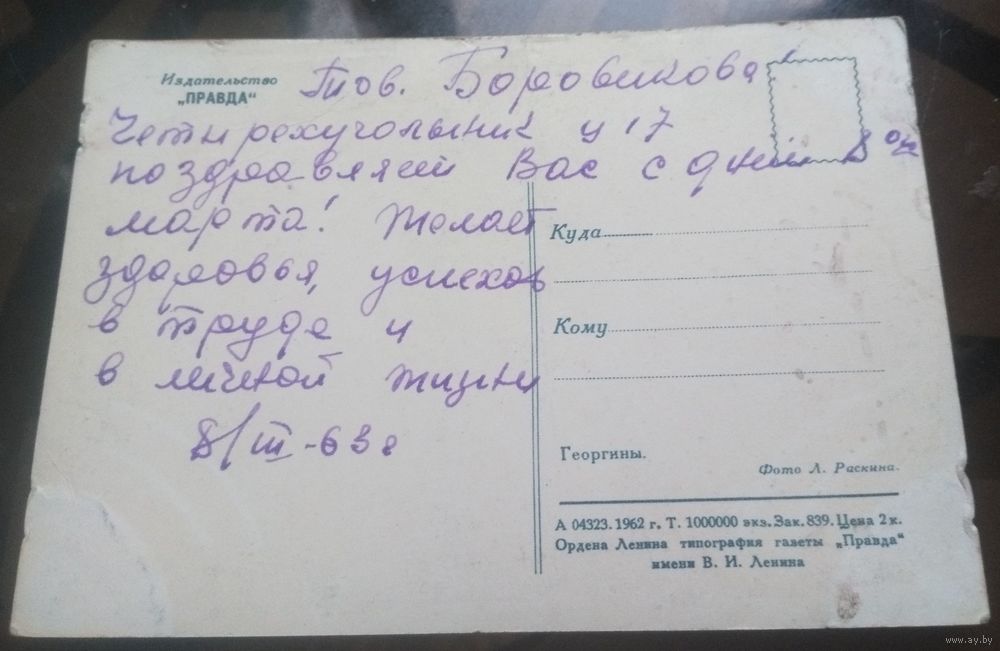 Издательство
„ПРАВДА“
Тов. Боровикова
Четырехугольник ц 17
поздравляет Вас с днем 8ое
марта! Желает
здоровья, успехов
в труде и
в личной жизни
8/III-63г
Куда
Кому
Георгины.
Фото Л. Раскина.
А 04323. 1962 г. Т. 1000000 экз. Зак. 839. Цена 2 к.
Ордена Ленина типография газеты „Правда“
имени В. И. Ленина
www.ay.by